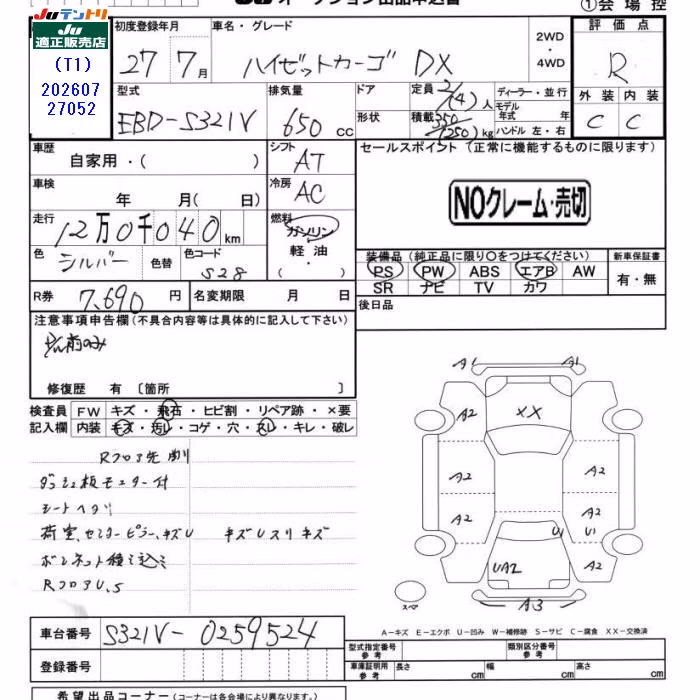 Juテントリ
適正販売店
(T1)
202607
27052
①会場控
初度登録年月
車名・グレード
27 7月
ハイゼットカーゴ DX
2WD
・
4WD
評価点
R
型式
EBD-S321V
排気量
650 cc
ドア
形状
定員 2/(4)人
積載 350/(250)kg
ディーラー・並行
モデル
年式 年
ハンドル 左・右
外装 内装
C C
車歴
自家用・( )
シフト
AT
セールスポイント (正常に機能するものに限ります)
車検
年 月( 日)
冷房
AC
NOクレーム・売切
走行
12万0千040km
燃料
ガソリン
軽油
・
( )
色
シルバー
色替
色コード
S28
装備品 (純正品に限り○をつけてください)
新車保証書
PS PW ABS エアB AW
SR ナビ TV カワ
有・無
R券
7,690円
名変期限 月 日
後日品
注意事項申告欄(不具合内容等は具体的に記入して下さい)
修復歴 有 〔箇所 〕
検査員
記入欄
FW キズ・飛石・ヒビ割・リペア跡・×要
内装 キズ・汚レ・コゲ・穴・スレ・キレ・破レ
Rフロア先削
シートヘタリ
荷室、センターピラー、キズU キズUスリキズ
RフロアU,S
A1 A1
A2 XX
A2 A2
A2 A2
U1 U1
UA2 A2
スペア A3
A-キズ E-エクボ U-凹み W-補修跡 S-サビ C-腐食 XX-交換済
車台番号
S321V-0259524
登録番号
型式指定番号
参考
類別区分番号
参考
車庫証明用
参考
長さ cm 幅 cm 高さ cm
希望出品コーナー (コーナーは各会場により異なります。)